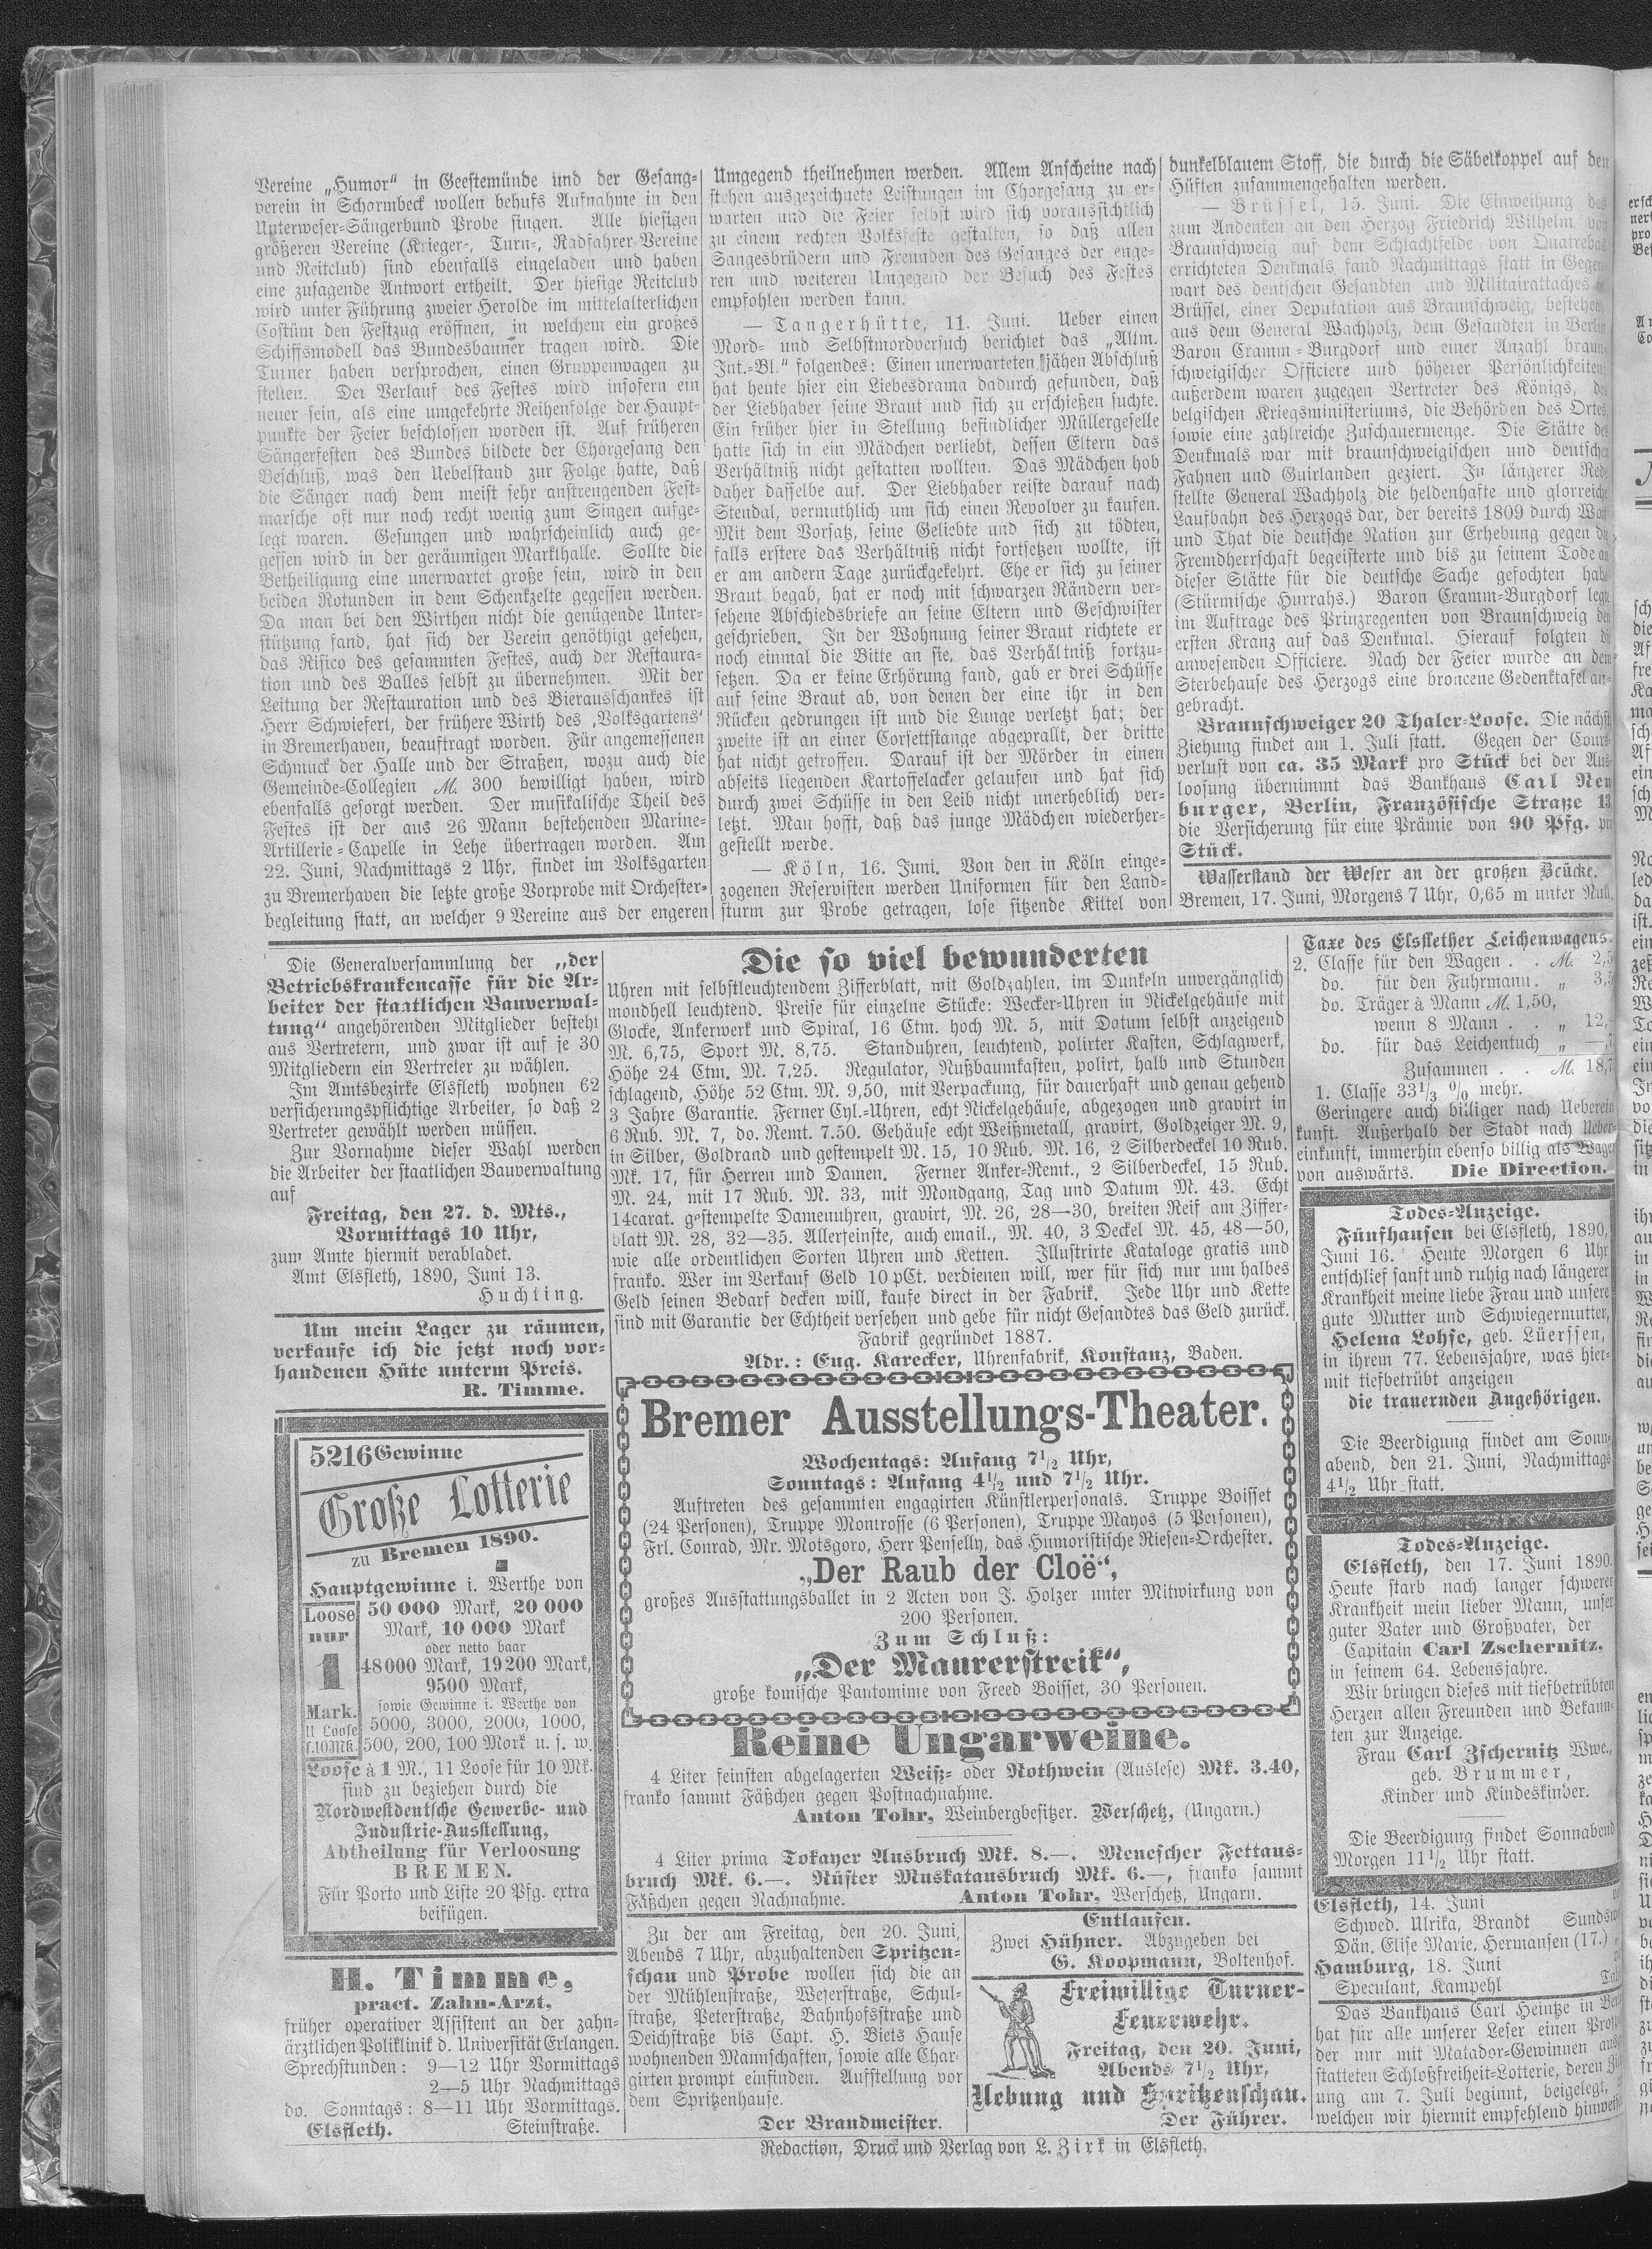 Vereine „Humor“ in Geestemünde und der Gesang-
verein in Scharmbeck wollen behufs Aufnahme in den
Unterweser-Sängerbund Probe singen. Alle hiesigen
größeren Vereine (Krieger-, Turn-, Radfahrer-Vereine
und Reitclub) sind ebenfalls eingeladen und haben
eine zusagende Antwort ertheilt. Der hiesige Reitclub
wird unter Führung zweier Herolde im mittelalterlichen
Costüm den Festzug eröffnen, in welchem ein großes
Schiffsmodell das Bundesbanner tragen wird. Die
Turner haben versprochen, einen Gruppenwagen zu
stellen. Der Verlauf des Festes wird insofern ein
neuer sein, als eine umgekehrte Reihenfolge der Haupt-
punkte der Feier beschlossen worden ist. Auf früheren
Sängerfesten des Bundes bildete der Chorgesang den
Beschluß, was den Uebelstand zur Folge hatte, daß
die Sänger nach dem meist sehr anstrengenden Fest-
marsche oft nur noch recht wenig zum Singen aufge-
legt waren. Gesungen und wahrscheinlich auch ge-
gessen wird in der geräumigen Markthalle. Sollte die
Betheiligung eine unerwartet große sein, wird in den
beiden Rotunden in dem Schenkzelte gegessen werden.
Da man bei den Wirthen nicht die genügende Unter-
stützung fand, hat sich der Verein genöthigt gesehen,
das Risico des gesammten Festes, auch der Restaura-
tion und des Balles selbst zu übernehmen. Mit der
Leitung der Restauration und des Bierausschankes ist
Herr Schwiefert, der frühere Wirth des ‚Volksgartens‘
in Bremerhaven, beauftragt worden. Für angemessenen
Schmuck der Halle und der Straßen, wozu auch die
Gemeinde-Collegien M. 300 bewilligt haben, wird
ebenfalls gesorgt werden. Der musikalische Theil des
Festes ist der aus 26 Mann bestehenden Marine-
Artillerie-Capelle in Lehe übertragen worden. Am
22. Juni, Nachmittags 2 Uhr, findet im Volksgarten
zu Bremerhaven die letzte große Vorprobe mit Orchester-
begleitung statt, an welcher 9 Vereine aus der engeren
Umgegend theilnehmen werden. Allem Anscheine nach
stehen ausgezeichnete Leistungen im Chorgesang zu er-
warten und die Feier selbst wird sich voraussichtlich
zu einem rechten Volksfeste gestalten, so daß allen
Sangesbrüdern und Freunden des Gesanges der enge-
ren und weiteren Umgegend der Besuch des Festes
empfohlen werden kann.
— Tangerhütte, 11. Juni. Ueber einen
Mord- und Selbstmordversuch berichtet das „Altm.
Int.-Bl.“ folgendes: Einen unerwarteten jähen Abschluß
hat heute hier ein Liebesdrama dadurch gefunden, daß
der Liebhaber seine Braut und sich zu erschießen suchte.
Ein früher hier in Stellung befindlicher Müllergeselle
hatte sich in ein Mädchen verliebt, dessen Eltern das
Verhältniß nicht gestatten wollten. Das Mädchen hob
daher dasselbe auf. Der Liebhaber reiste darauf nach
Stendal, vermuthlich um sich einen Revolver zu kaufen.
Mit dem Vorsatz, seine Geliebte und sich zu tödten,
falls erstere das Verhältniß nicht fortsetzen wollte, ist
er am andern Tage zurückgekehrt. Ehe er sich zu seiner
Braut begab, hat er noch mit schwarzen Rändern ver-
sehene Abschiedsbriefe an seine Eltern und Geschwister
geschrieben. In der Wohnung seiner Braut richtete er
noch einmal die Bitte an sie, das Verhältniß fortzu-
setzen. Da er keine Erhörung fand, gab er drei Schüsse
auf seine Braut ab, von denen der eine ihr in den
Rücken gedrungen ist und die Lunge verletzt hat; der
zweite ist an einer Corsettstange abgeprallt, der dritte
hat nicht getroffen. Darauf ist der Mörder in einen
abseits liegenden Kartoffelacker gelaufen und hat sich
durch zwei Schüsse in den Leib nicht unerheblich ver-
letzt. Man hofft, daß das junge Mädchen wiederher-
gestellt werde.
— Köln, 16. Juni. Von den in Köln einge-
zogenen Reservisten werden Uniformen für den Land-
sturm zur Probe getragen, lose sitzende Kittel von
dunkelblauem Stoff, die durch die Säbelkoppel auf den
Hüften zusammengehalten werden.
— Brüssel, 15. Juni. Die Einweihung des
zum Andenken an den Herzog Friedrich Wilhelm von
Braunschweig auf dem Schlachtfelde von Quatrebas
errichteten Denkmals fand Nachmittags statt in Gegen-
wart des deutschen Gesandten und Militairattaches in
Brüssel, einer Deputation aus Braunschweig, bestehend
aus dem General Wachholz, dem Gesandten in Berlin
Baron Cramm-Burgdorf und einer Anzahl braun-
schweigischer Officiere und höherer Persönlichkeiten;
außerdem waren zugegen Vertreter des Königs, des
belgischen Kriegsministeriums, die Behörden des Ortes,
sowie eine zahlreiche Zuschauermenge. Die Stätte des
Denkmals war mit braunschweigischen und deutschen
Fahnen und Guirlanden geziert. In längerer Rede
stellte General Wachholz die heldenhafte und glorreiche
Laufbahn des Herzogs dar, der bereits 1809 durch Wort
und That die deutsche Nation zur Erhebung gegen die
Fremdherrschaft begeisterte und bis zu seinem Tode an
dieser Stätte für die deutsche Sache gefochten habe
(Stürmische Hurrahs.) Baron Cramm-Burgdorf legte
im Auftrage des Prinzregenten von Braunschweig den
ersten Kranz auf das Denkmal. Hierauf folgten die
anwesenden Officiere. Nach der Feier wurde an dem
Sterbehause des Herzogs eine broncene Gedenktafel an-
gebracht.
Braunschweiger 20 Thaler-Loose. Die nächste
Ziehung findet am 1. Juli statt. Gegen den Cours-
verlust von ca. 35 Mark pro Stück bei der Aus-
loosung übernimmt das Bankhaus Carl Neu
burger, Berlin, Französische Straße 13,
die Versicherung für eine Prämie von 90 Pfg. pro
Stück.
Wasserstand der Weser an der großen Brücke.
Bremen, 17. Juni, Morgens 7 Uhr, 0,65 m unter Null.
Die Generalversammlung der „der
Betriebskrankencasse für die Ar-
beiter der staatlichen Bauverwal-
tung“ angehörenden Mitglieder besteht
aus Vertretern, und zwar ist auf je 30
Mitgliedern ein Vertreter zu wählen.
Im Amtsbezirke Elsfleth wohnen 62
versicherungspflichtige Arbeiter, so daß 2
Vertreter gewählt werden müssen.
Zur Vornahme dieser Wahl werden
die Arbeiter der staatlichen Bauverwaltung
auf
Freitag, den 27. d. Mts.,
Vormittags 10 Uhr,
zum Amte hiermit verabladet.
Amt Elsfleth, 1890, Juni 13.
Huchting.
Um mein Lager zu räumen,
verkaufe ich die jetzt noch vor-
handenen Hüte unterm Preis.
R. Timme.
5216 Gewinne
Große Lotterie
zu Bremen 1890.
Hauptgewinne i. Werthe von
50 000 Mark, 20 000
Mark, 10 000 Mark
oder netto baar
48000 Mark, 19200 Mark,
9500 Mark,
sowie Gewinne i. Werthe von
5000, 3000, 2000, 1000,
500, 200, 100 Mark u. s. w.
Loose
nur
1
Mark.
11 Loose
f. 10 Mk.
Loose à 1 M., 11 Loose für 10 Mk.
sind zu beziehen durch die
Nordwestdeutsche Gewerbe- und
Industrie-Ausstellung,
Abtheilung für Verloosung
BREMEN.
Für Porto und Liste 20 Pfg. extra
beifügen.
H. Timme,
pract. Zahn-Arzt,
früher operativer Assistent an der zahn-
ärztlichen Poliklinik d. Universität Erlangen.
Sprechstunden: 9—12 Uhr Vormittags
2—5 Uhr Nachmittags
do. Sonntags: 8—11 Uhr Vormittags.
Elsfleth. Steinstraße.
Die so viel bewunderten
Uhren mit selbstleuchtendem Zifferblatt, mit Goldzahlen, im Dunkeln unvergänglich
mondhell leuchtend. Preise für einzelne Stücke: Wecker-Uhren in Nickelgehäuse mit
Glocke, Ankerwerk und Spiral, 16 Ctm. hoch M. 5, mit Datum selbst anzeigend
M. 6,75, Sport M. 8,75. Standuhren, leuchtend, polirter Kasten, Schlagwerk,
Höhe 24 Ctm. M. 7,25. Regulator, Nußbaumkasten, polirt, halb und Stunden
schlagend, Höhe 52 Ctm. M. 9,50, mit Verpackung, für dauerhaft und genau gehend
3 Jahre Garantie. Ferner Cyl.-Uhren, echt Nickelgehäuse, abgezogen und gravirt in
6 Rub. M. 7, do. Remt. 7.50. Gehäuse echt Weißmetall, gravirt, Goldzeiger M. 9,
in Silber, Goldrand und gestempelt M. 15, 10 Rub. M. 16, 2 Silberdeckel 10 Rub.
Mk. 17, für Herren und Damen. Ferner Anker-Remt., 2 Silberdeckel, 15 Rub.
M. 24, mit 17 Rub. M. 33, mit Mondgang, Tag und Datum M. 43. Echt
14carat. gestempelte Damenuhren, gravirt, M. 26, 28—30, breiten Reif am Ziffer-
blatt M. 28, 32—35. Allerfeinste, auch email., M. 40, 3 Deckel M. 45, 48—50,
wie alle ordentlichen Sorten Uhren und Ketten. Illustrirte Kataloge gratis und
franko. Wer im Verkauf Geld 10 pCt. verdienen will, wer für sich nur um halbes
Geld seinen Bedarf decken will, kaufe direct in der Fabrik. Jede Uhr und Kette
sind mit Garantie der Echtheit versehen und gebe für nicht Gesandtes das Geld zurück.
Fabrik gegründet 1887.
Adr.: Eug. Karecker, Uhrenfabrik, Konstanz, Baden.
Bremer Ausstellungs-Theater.
Wochentags: Anfang 7½ Uhr,
Sonntags: Anfang 4½ und 7½ Uhr.
Auftreten des gesammten engagirten Künstlerpersonals. Truppe Boisset
(24 Personen), Truppe Montrosse (6 Personen), Truppe Mayos (5 Personen),
Frl. Conrad, Mr. Motsgoro, Herr Penselly, das Humoristische Riesen-Orchester.
„Der Raub der Cloë“,
großes Ausstattungsballet in 2 Acten von J. Holzer unter Mitwirkung von
200 Personen.
Zum Schluß:
„Der Maurerstreik“,
große komische Pantomime von Freed Boisset, 30 Personen.
Reine Ungarweine.
4 Liter feinsten abgelagerten Weiß- oder Rothwein (Auslese) Mk. 3.40,
franko sammt Fäßchen gegen Postnachnahme.
Anton Tohr, Weinbergbesitzer. Werschetz, (Ungarn.)
4 Liter prima Tokayer Ausbruch Mk. 8.—. Menescher Fettaus-
bruch Mk. 6.—. Rüster Muskatausbruch Mk. 6.—, franko sammt
Fäßchen gegen Nachnahme. Anton Tohr, Werschetz, Ungarn.
Zu der am Freitag, den 20. Juni,
Abends 7 Uhr, abzuhaltenden Spritzen-
schau und Probe wollen sich die an
der Mühlenstraße, Weserstraße, Schul-
straße, Peterstraße, Bahnhofstraße und
Deichstraße bis Capt. H. Biets Hause
wohnenden Mannschaften, sowie alle Char-
girten prompt einfinden. Aufstellung vor
dem Spritzenhause.
Der Brandmeister.
Entlaufen.
Zwei Hühner. Abzugeben bei
G. Koopmann, Boltenhof.
Freiwillige Turner-
Feuerwehr.
Freitag, den 20. Juni,
Abends 7½ Uhr,
Uebung und Spritzenschau.
Der Führer.
Taxe des Elsflether Leichenwagens.
2. Classe für den Wagen . . M. 2,5
do. für den Fuhrmann. „ 3,5
do. Träger à Mann M. 1,50,
wenn 8 Mann . . „ 12,-
do. für das Leichentuch „ —,7
Zusammen . . M. 18,7
1. Classe 33⅓ % mehr.
Geringere auch billiger nach Ueberein
kunft. Außerhalb der Stadt nach Ueber-
einkunft, immerhin ebenso billig als Wagen
von auswärts. Die Direction.
Todes-Anzeige.
Fünfhausen bei Elsfleth, 1890,
Juni 16. Heute Morgen 6 Uhr
entschlief sanft und ruhig nach längerer
Krankheit meine liebe Frau und unsere
gute Mutter und Schwiegermutter,
Helena Lohse, geb. Lüerssen,
in ihrem 77. Lebensjahre, was hier-
mit tiefbetrübt anzeigen
die trauernden Angehörigen.
Die Beerdigung findet am Sonn-
abend, den 21. Juni, Nachmittags
4½ Uhr statt.
Todes-Anzeige.
Elsfleth, den 17. Juni 1890.
Heute starb nach langer schwerer
Krankheit mein lieber Mann, unser
guter Vater und Großvater, der
Capitain Carl Zschernitz,
in seinem 64. Lebensjahre.
Wir bringen dieses mit tiefbetrübten
Herzen allen Freunden und Bekann-
ten zur Anzeige.
Frau Carl Zschernitz Wwe.,
geb. Brummer,
Kinder und Kindeskinder.
Die Beerdigung findet Sonnabend
Morgen 11½ Uhr statt.
Elsfleth, 14. Juni
Schwed. Ulrika, Brandt
Dän. Elise Marie, Hermansen (17.)
Hamburg, 18. Juni
Speculant, Kampehl
Das Bankhaus Carl Heintze in
hat für alle unserer Leser einen
der nur mit Matador-Gewinnen
statteten Schloßfreiheit-Lotterie, deren
ung am 7. Juli beginnt, beigelegt,
welchen wir hiermit empfehlend
Redaction, Druck und Verlag von L. Zirk in Elsfleth.